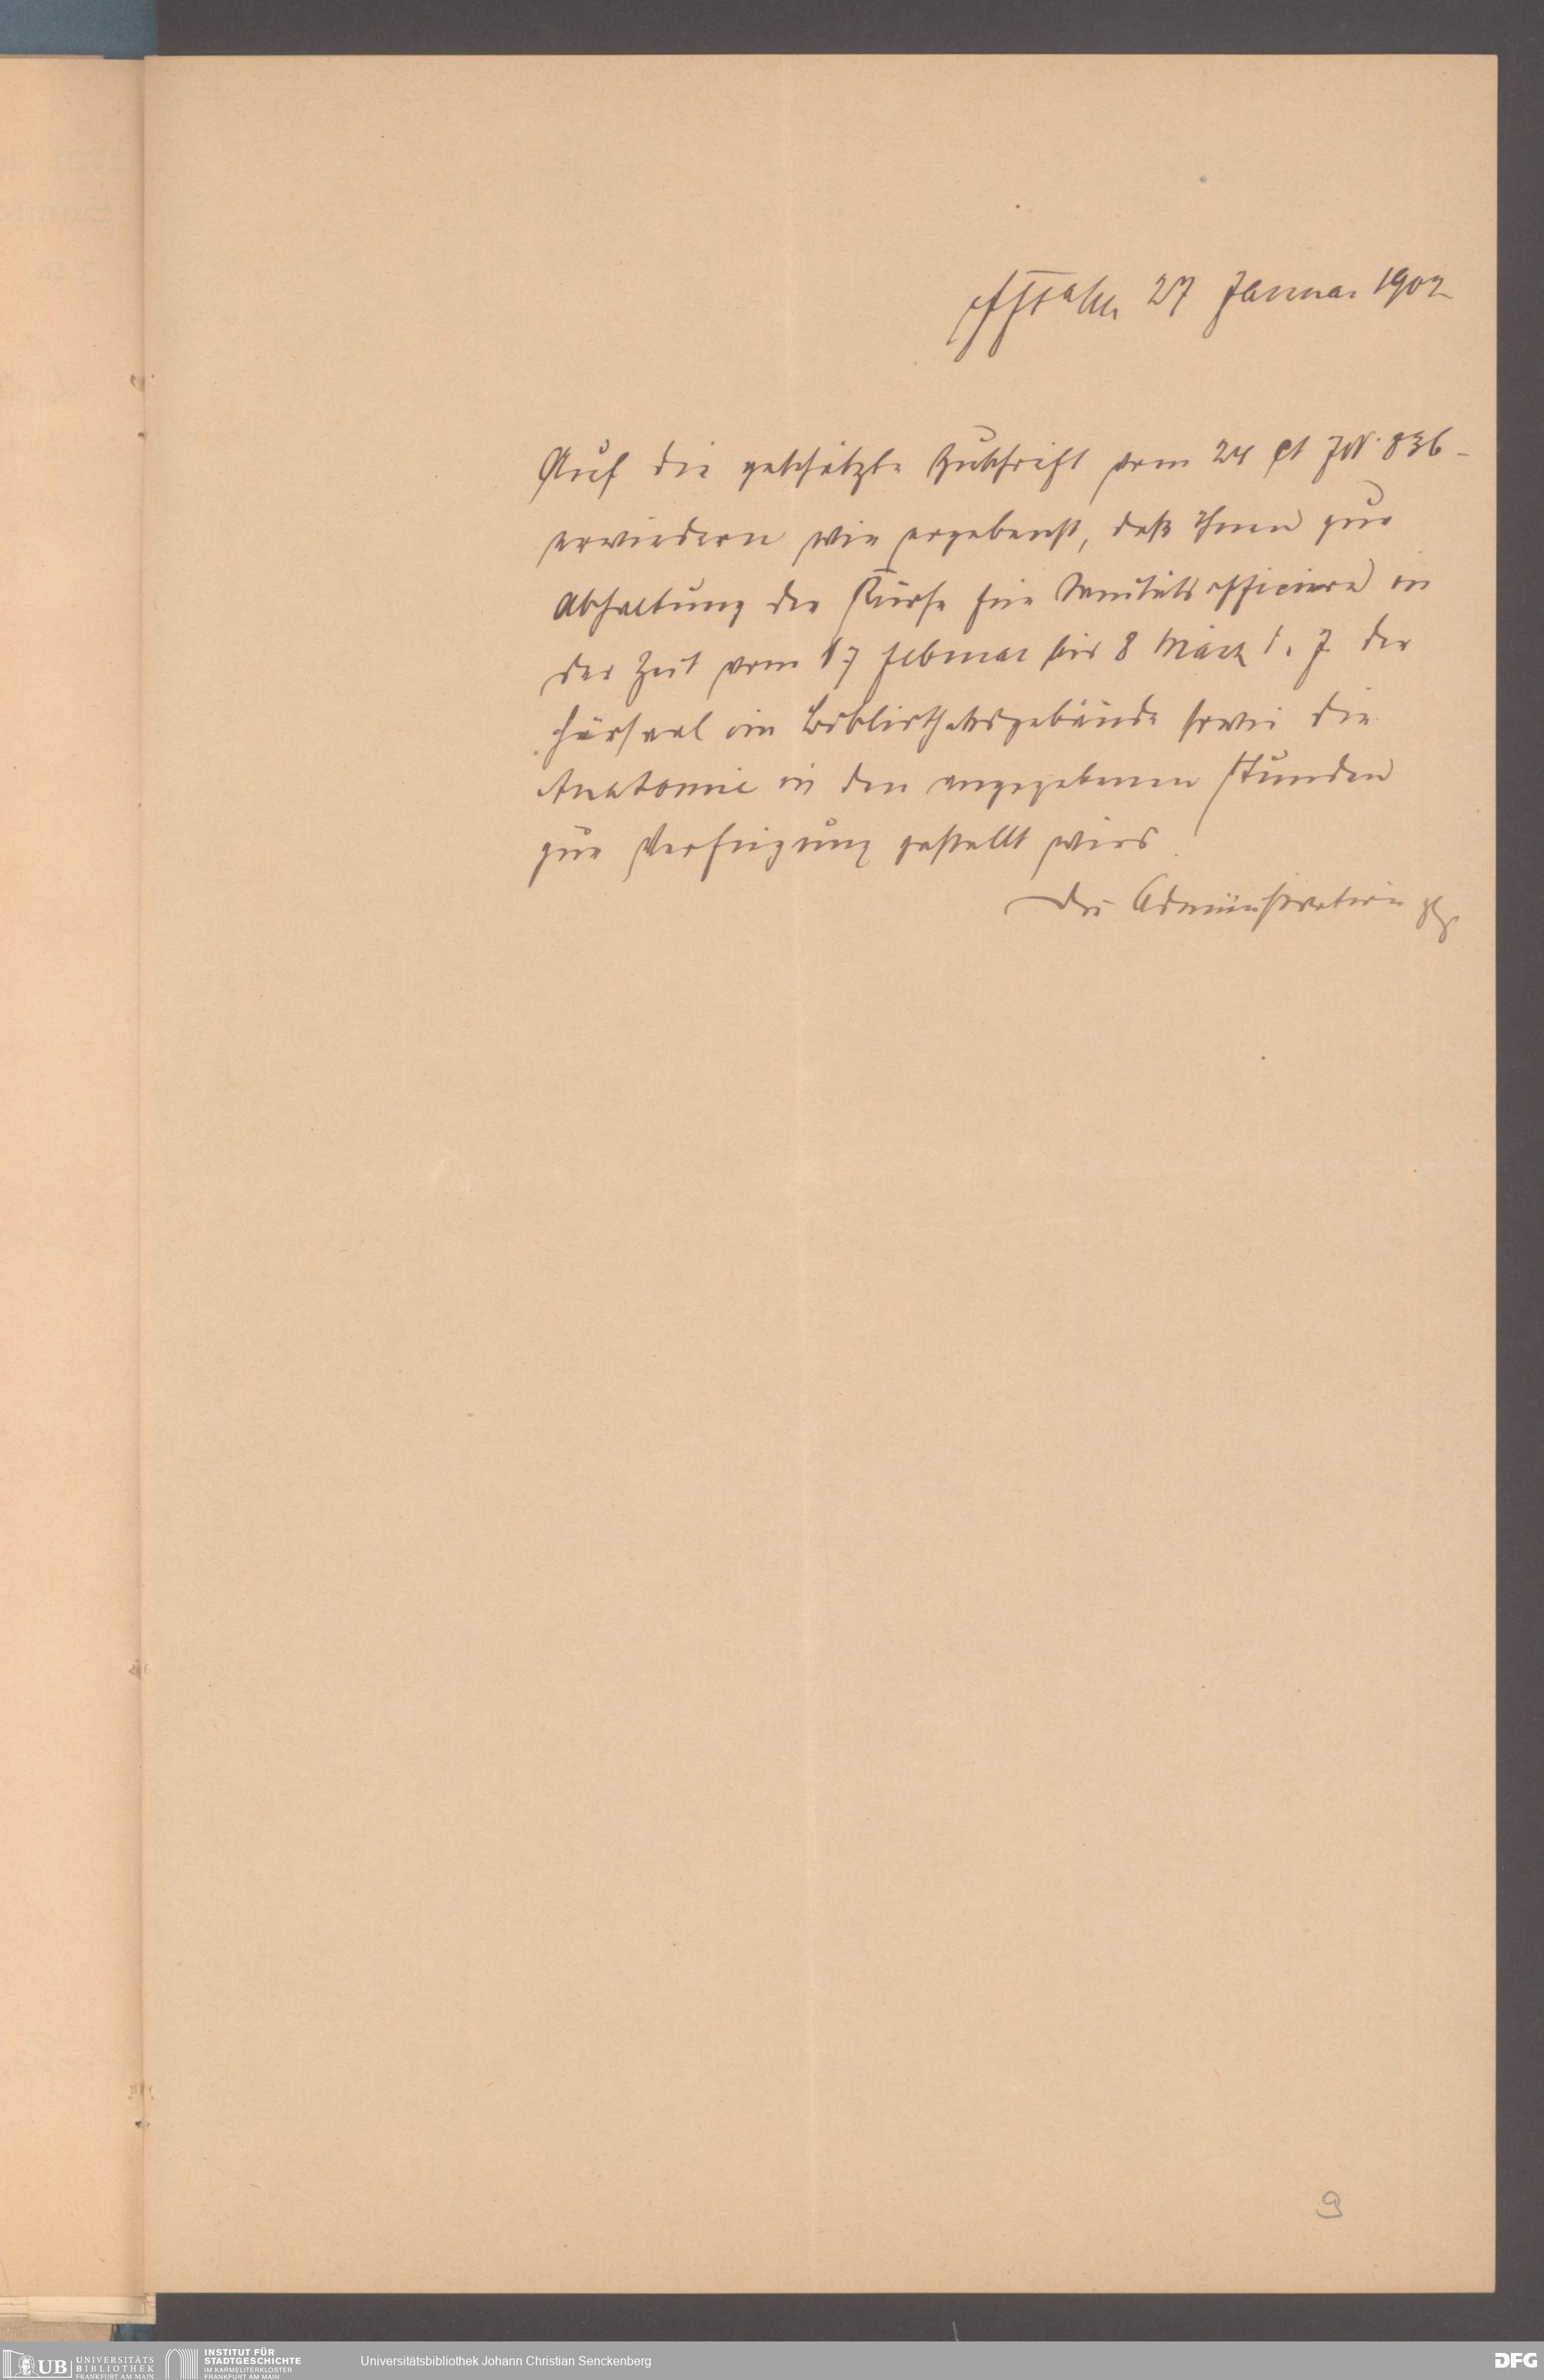 27 Januar 1902
Auf die geschätzte Zuschrift vom 24 ct JN. 836
erwiedern wir ergebenst, daß Ihnen zur
Abhaltung der Kurse für Sanitätsofficiere in
der Zeit vom 17 Februar bis 8 März d. J. der
Hörsaal im Bibliotheksgebäude sowie die
Anatomie in den angegebenen Stunden
zur Verfügung gestellt wird.
Die Administration
9
UB UNIVERSITÄTS BIBLIOTHEK FRANKFURT AM MAIN
INSTITUT FÜR STADTGESCHICHTE IM KARMELITERKLOSTER FRANKFURT AM MAIN
Universitätsbibliothek Johann Christian Senckenberg
DFG